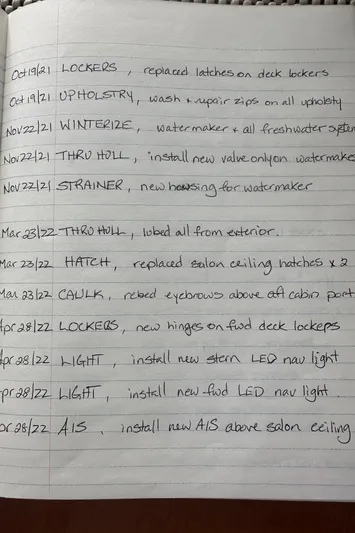 Oct 19/21 LOCKERS, replaced latches on deck lockers
Oct 19/21 UPHOLSTRY, wash + repair zips on all upholsty
Nov 22/21 WINTERIZE, watermaker + all freshwater system
Nov 22/21 THRU HULL, install new valve only on watermaker
Nov 22/21 STRAINER, new housing for watermaker
Mar 23/22 THRU HULL, lubed all from exterior.
Mar 23/22 HATCH, replaced salon ceiling hatches x 2
Mar 23/22 CAULK, rebed eyebrows above aft cabin port
Apr 28/22 LOCKERS, new hinges on fwd deck lockers
Apr 28/22 LIGHT, install new stern LED nav light
Apr 28/22 LIGHT, install new fwd LED nav light.
Apr 28/22 AIS, install new AIS above salon ceiling